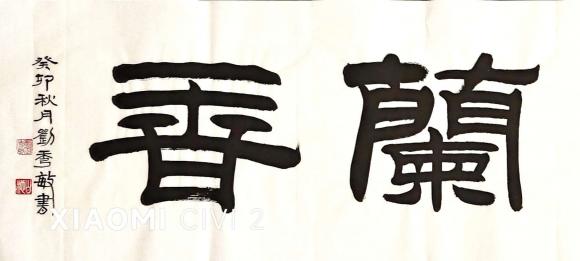 蘭香
癸卯秋月劉香敏書
XIAOMI CIVI 2